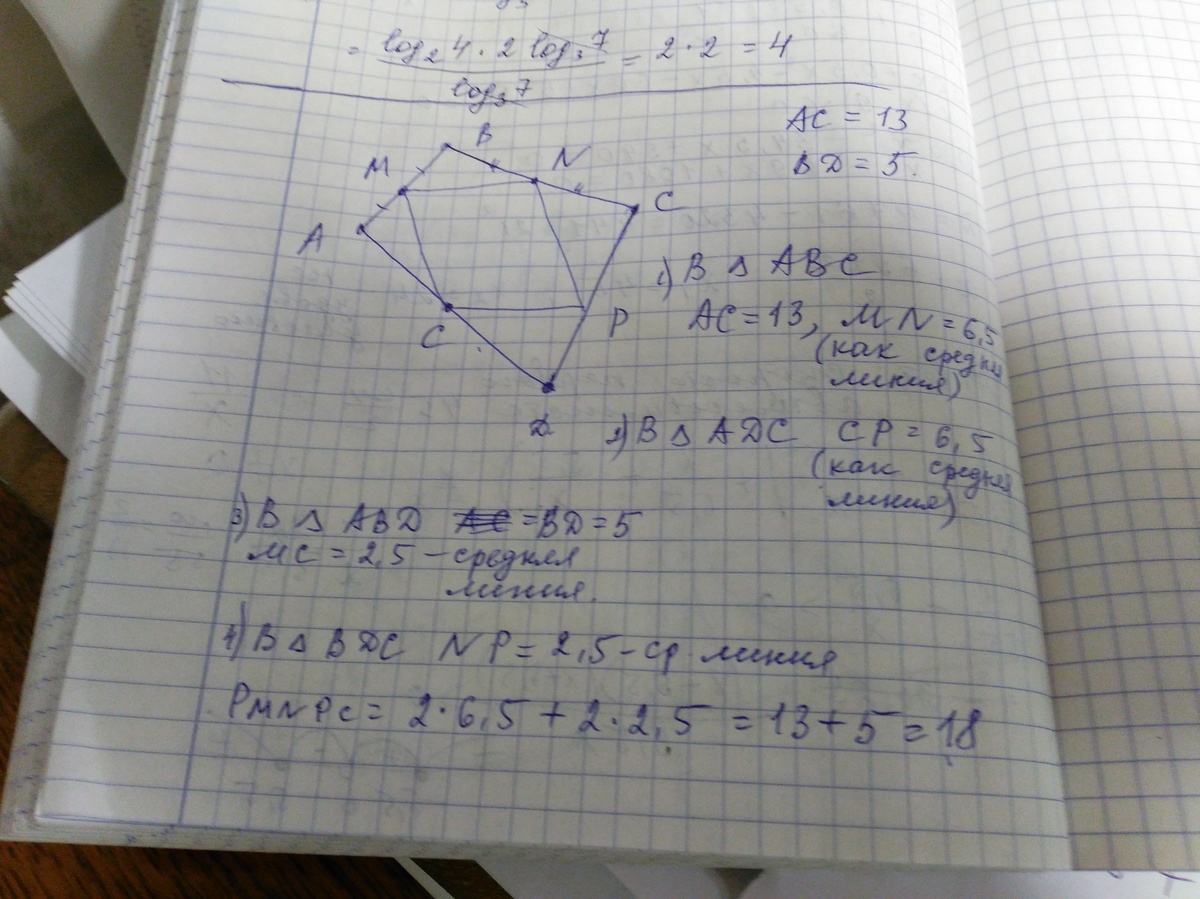 = log₂4 · 2 log₃7 / log₃7 = 2 · 2 = 4
AC = 13
BD = 5.
B
M
N
C
A
C
P
D
1) В △ ABC
AC = 13, MN = 6,5
(как средняя
линия)
2) В △ ADC CP = 6,5
(как средняя
линия)
3) В △ ABD AC = BD = 5
MC = 2,5 – средняя
линия.
4) В △ BDC NP = 2,5 – ср линия
PMNPC = 2 · 6,5 + 2 · 2,5 = 13 + 5 = 18